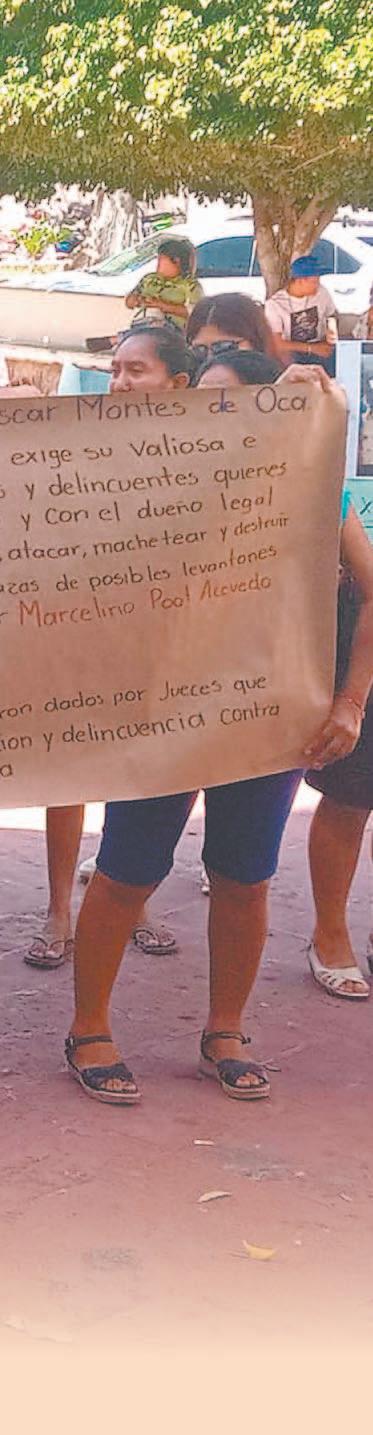 scar Montes de Oca.
exige su valiosa e
s y delincuentes quienes
y con el dueño legal
atacar, machetear y destruir
azas de posibles levantones
r Marcelino Poot Acevedo
ron dados por Jueces que
ion y delincuencia contra
a
X